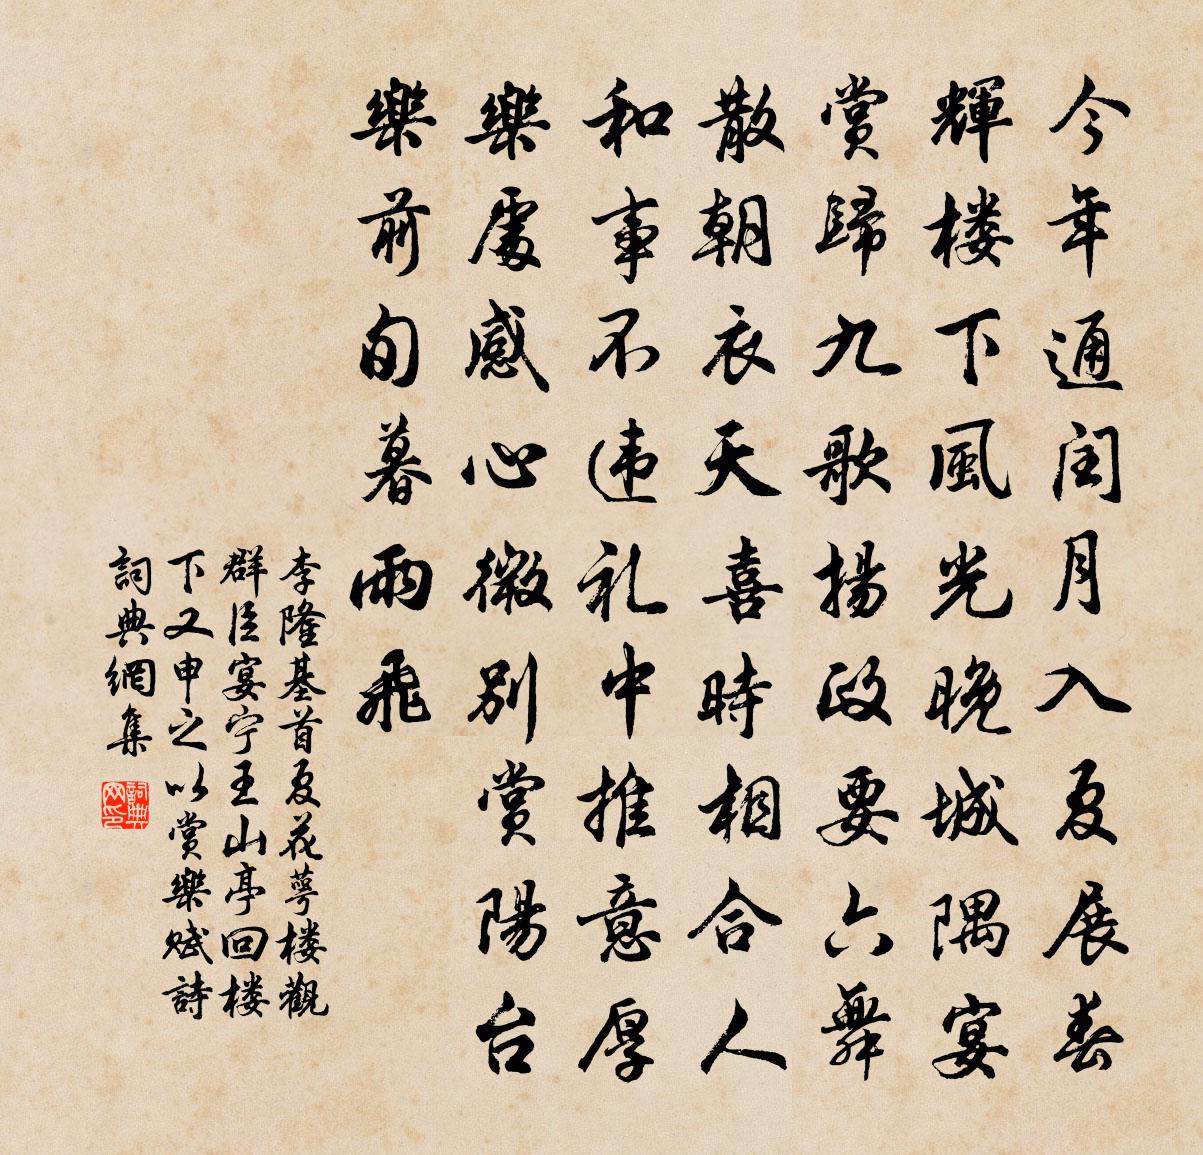 今年通閏月入夏展春
輝楼下風光晚城隅宴
賞歸九歌揚政要六舞
散朝衣天喜時相合人
和事不违礼中推意厚
樂處感心微別賞陽台
樂前旬暮雨飛
李隆基首夏花萼楼觀
群臣宴宁王山亭回楼
下又申之以賞樂賦詩
詞典網集
詞典
网印